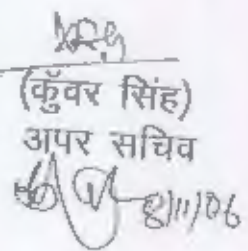 (कुँवर सिंह)
अपर सचिव
8/11/06